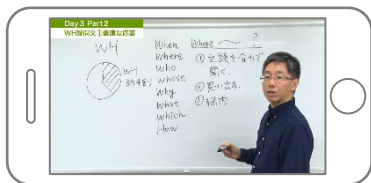 Day3 Part2
WH疑問文①素直な応答
WH
WH
When
Where
Who
Whose
Why
What
Which
How
Where 〜 ?
① 文頭を全力で
聞く.
②
③